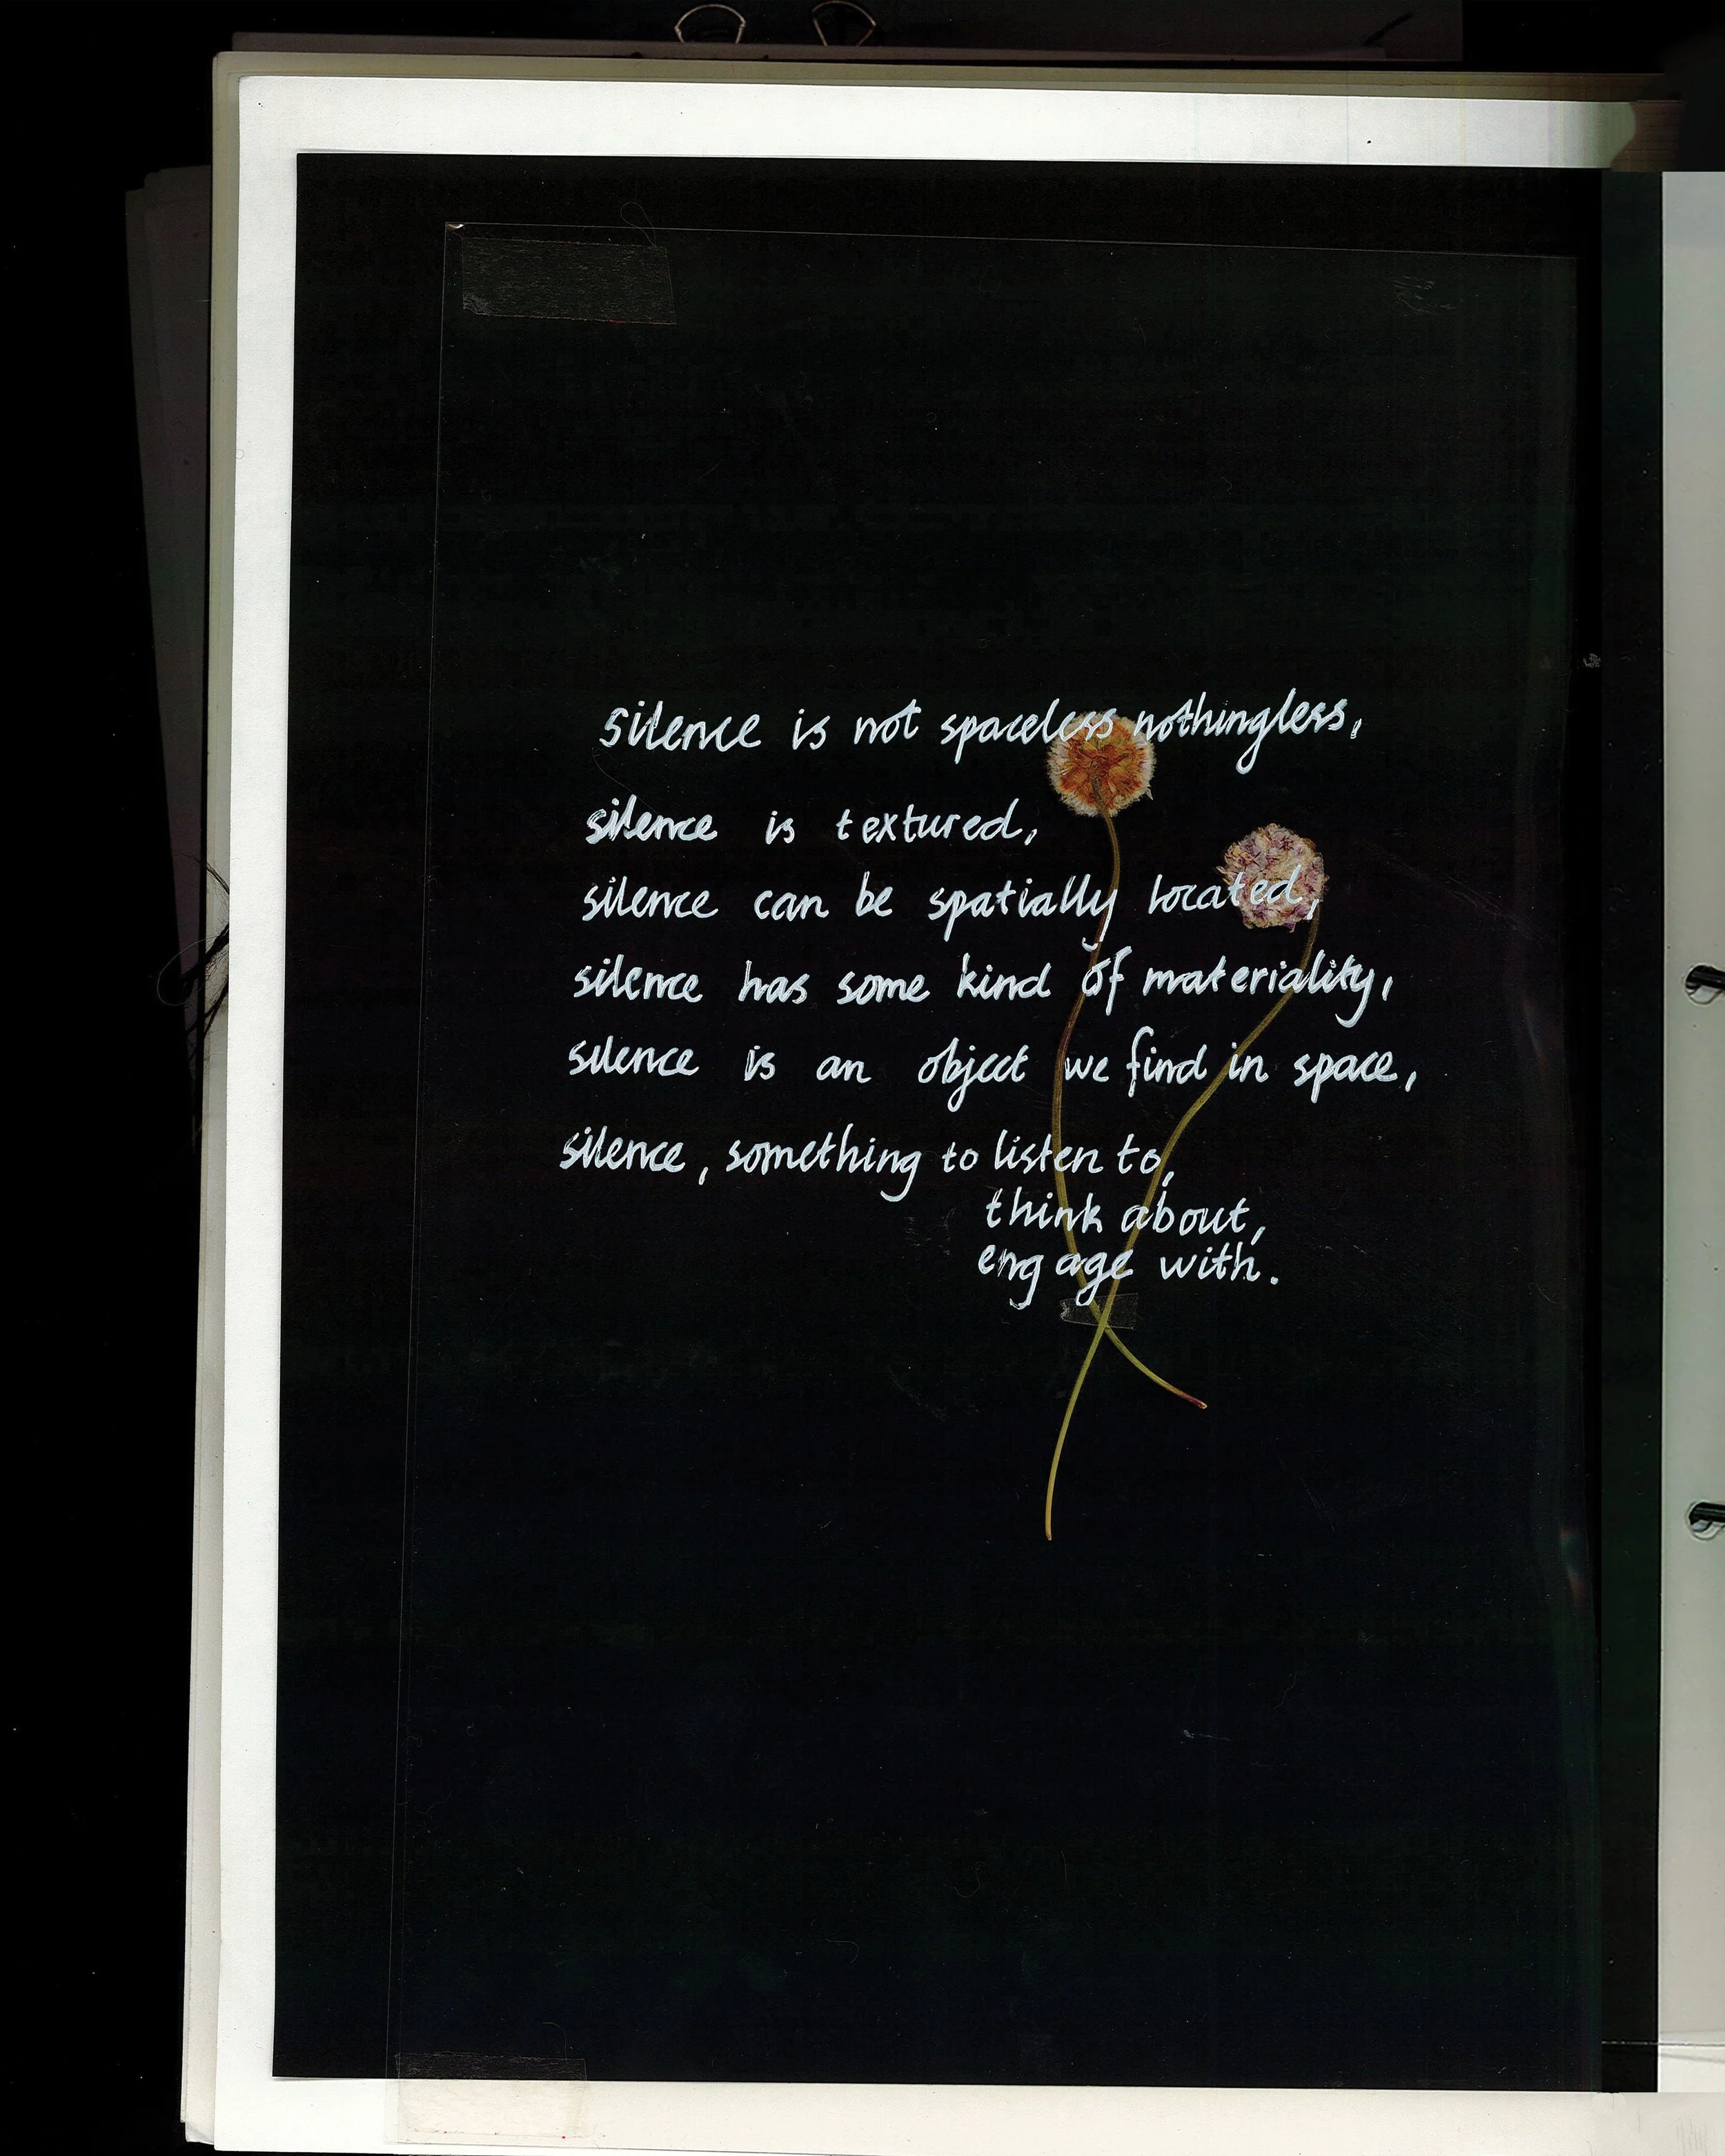 silence is not spaceless nothingless,
silence is textured,
silence can be spatially located,
silence has some kind of materiality,
silence is an object we find in space,
silence, something to listen to,
think about,
engage with.